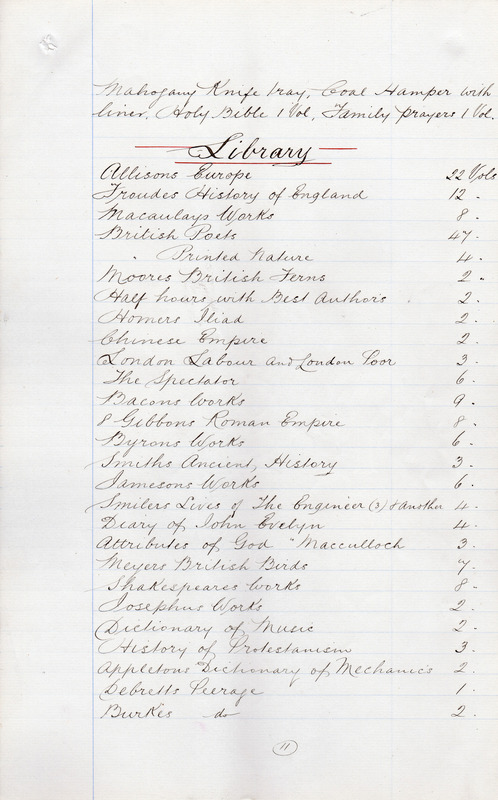 Mahogany Knife tray, Coal Hamper with
liner, Holy Bible 1 Vol, Family prayers 1 Vol.
Library
Allisons Europe 22 Vols
Froudes History of England 12 .
Macaulays Works 8 .
British Poets 47 .
" Printed Nature 4 .
Moores British Ferns 2 .
Half hours with Best Authors 2 .
Homers Iliad 2 .
Chinese Empire 2 .
London Labour and London Poor 3 .
The Spectator 6 .
Bacons Works 9 .
8 Gibbons Roman Empire 8 .
Byrons Works 6 .
Smiths Ancient, History 3 .
Jamesons Works 6 .
Smilers Lives of The Engineer (3) & another 4 .
Diary of John Evelyn 4 .
Attributes of God " Macculloch 3 .
Meyers British Birds 7 .
Shakespeares Works 8 .
Josephus Works 2 .
Dictionary of Music 2 .
History of Protestanism 3 .
Appletons Dictionary of Mechanics 2 .
Debretts Peerage 1 .
Burkes do 2 .
11